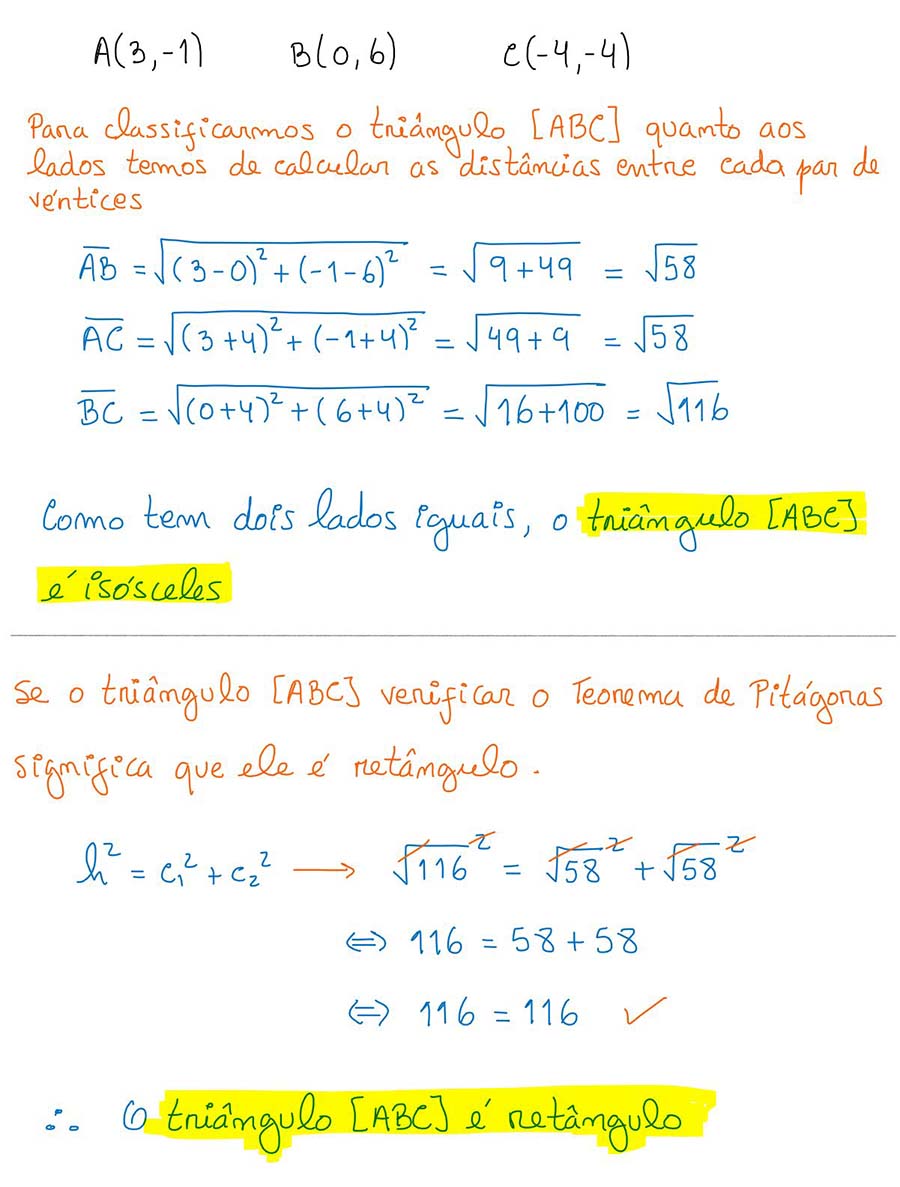 A(3,-1) B(0,6) C(-4,-4)
Para classificarmos o triângulo [ABC] quanto aos
lados temos de calcular as distâncias entre cada par de
vértices
A̅B̅ = √((3-0)²+(-1-6)²) = √(9+49) = √58
A̅C̅ = √((3+4)²+(-1+4)²) = √(49+9) = √58
B̅C̅ = √((0+4)²+(6+4)²) = √(16+100) = √116
Como tem dois lados iguais, o triângulo [ABC]
é isósceles
Se o triângulo [ABC] verificar o Teorema de Pitágoras
significa que ele é retângulo.
h² = c₁² + c₂² → √116² = √58² + √58²
⇔ 116 = 58 + 58
⇔ 116 = 116 ✓
∴ O triângulo [ABC] é retângulo